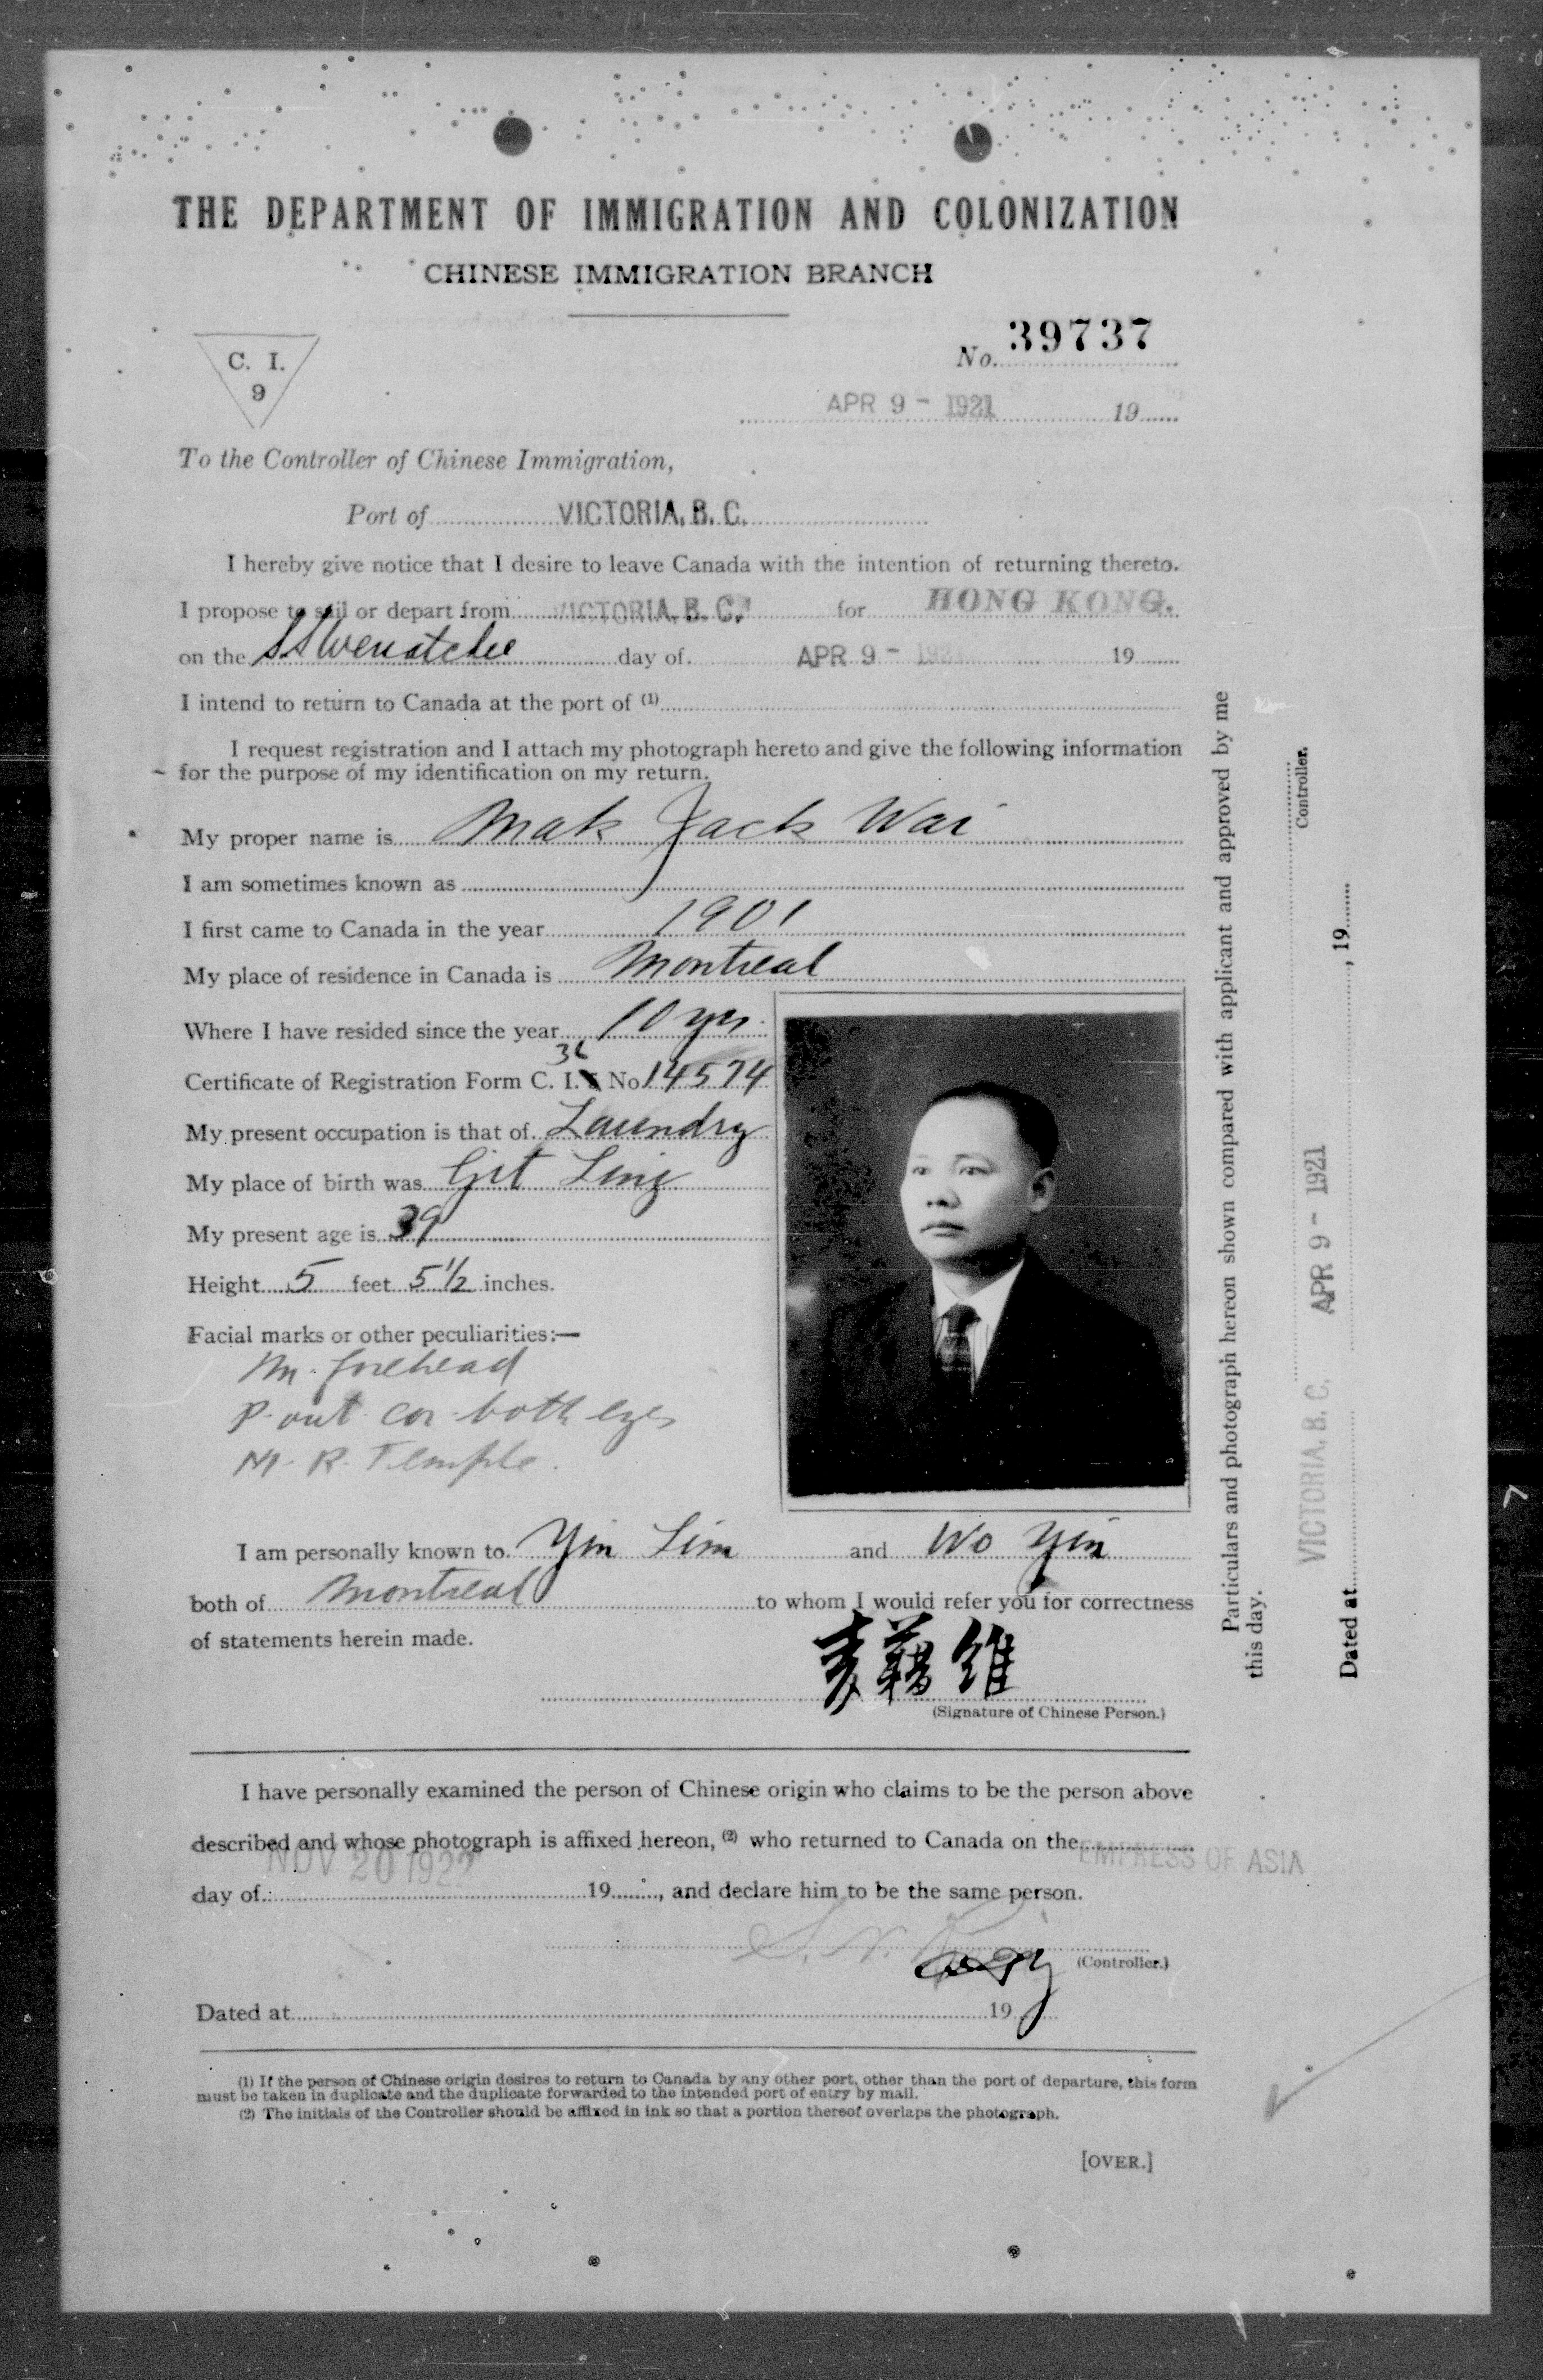 THE DEPARTMENT OF IMMIGRATION AND COLONIZATION
CHINESE IMMIGRATION BRANCH
C. I.
9
No. 39737
APR 9 - 1921 19
To the Controller of Chinese Immigration,
Port of VICTORIA, B. C.
I hereby give notice that I desire to leave Canada with the intention of returning thereto.
I propose to sail or depart from VICTORIA, B. C. for HONG KONG.
on the SS Wenatchee day of APR 9 - 1921 19
I intend to return to Canada at the port of (1)
I request registration and I attach my photograph hereto and give the following information
for the purpose of my identification on my return.
My proper name is Mak Jack Wai
I am sometimes known as
I first came to Canada in the year 1901
My place of residence in Canada is Montreal
Where I have resided since the year 10 yrs
36
Certificate of Registration Form C. I. No 14574
My present occupation is that of Laundry
My place of birth was Git Ling
My present age is 39
Height 5 feet 5 1/2 inches.
Facial marks or other peculiarities:—
M. forehead
P. out cor both eyes
M. R. Temple.
I am personally known to Yin Sim and Wo Yin
both of Montreal to whom I would refer you for correctness
of statements herein made.
麦藉維
(Signature of Chinese Person.)
I have personally examined the person of Chinese origin who claims to be the person above
described and whose photograph is affixed hereon, (2) who returned to Canada on the EMPRESS OF ASIA
NOV 20 1922
day of 19, and declare him to be the same person.
(Controller.)
Dated at 19
(1) If the person of Chinese origin desires to return to Canada by any other port, other than the port of departure, this form
must be taken in duplicate and the duplicate forwarded to the intended port of entry by mail.
(2) The initials of the Controller should be affixed in ink so that a portion thereof overlaps the photograph.
[OVER.]
Particulars and photograph hereon shown compared with applicant and approved by me
this day.
Controller.
VICTORIA, B. C. APR 9 - 1921
Dated at , 19